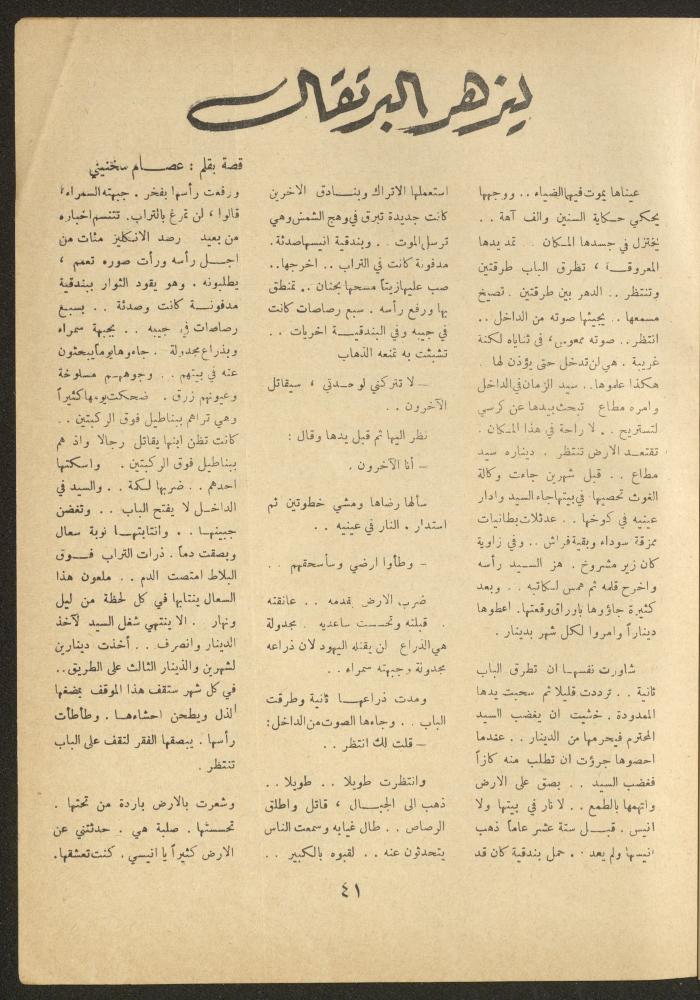 ليزهر البرتقال
قصة بقلم : عصـــام سخنيني
عيناها يموت فيها الضياء .. ووجهها
يحكي حكاية السنين والف آهة ..
يختزل في جسدها المكان . تمد يدها
المعروقة ، تطرق الباب طرقتين
وتنتظر .. الدهر بين طرقتين . تصيخ
مسمعها .. يجيئها صوته من الداخل ..
انتظر .. صوته مغموس ، في ثناياه لكنة
غريبة . هي لن تدخل حتى يؤذن لها
هكذا علموها .. سيد الزمان في الداخل
وامره مطاع تبحث بيدها عن كرسي
لتستريح . . لا راحة في هذا المكان .
تقتعد الارض تنتظر . ديناره سيد
مطاع .. قبل شهرين جاءت وكالة
الغوث تحصيها في بيتها جاء السيد وادار
عينيه في كوخها . . عد ثلاث بطانيات
ممزقة سوداء وبقية فراش .. وفي زاوية
كان زير مشروخ . هز السيد رأسه
واخرج قلمه ثم همس لكاتبه .. وبعد
كثيرة جاؤوها باوراق وقعتها . اعطوها
ديناراً وامروا لكل شهر بدينار .
شاورت نفسها ان تطرق الباب
ثانية .. ترددت قليلا ثم سحبت يدها
الممدودة . خشيت ان يغضب السيد
المحترم فيحرمها من الدينار .. عندما
احصوها جرؤت ان تطلب منه كازاً
فغضب السيد .. بصق على الارض
واتهمها بالطمع .. لا نار في بيتها ولا
انيس . قبـــل ستة عشر عاماً ذهب
انيسها ولم يعد .. حمل بندقية كان قد
استعملها الاتراك وبنـــادق الاخرين
كانت جديدة تبرق في وهج الشمس وهي
ترسل الموت . . وبندقية انيسها صدئة .
مدفونة كانت في التراب .. اخرجها ..
صب عليها زيتاً مسحها بحنان .. تمنطق
بها ورفع رأسه . سبع رصاصات كانت
في جيبه وفي البندقيـــة اخريات ..
تشبثت به تمنعه الذهاب
– لا تتركني لوحدتي ، سيقاتل
الآخرون ..
نظر اليها ثم قبل يدها وقال :
– أنا الآخرون .
سألها رضاها ومشي خطوتين ثم
استدار . النار في عينيه ..
– وطأوا ارضي وسأسحقهم . .
ضرب الارض بقدمه . . عانقته
قبلته وتحسست ساعديه . مجدولة
هي الذراع لن يقتله اليهود لان ذراعه
مجدولة وجبهته سمراء ..
ومدت ذراعهـــا ثانية وطرقت
الباب . . وجاءها الصوت من الداخل :
– قلت لك انتظر ..
وانتظرت طويلا . . طويلا ..
ذهب الى الجبـــال ، قاتل واطلق
الرصاص .. طال غيابه وسمعت الناس
يتحدثون عنه .. لقبوه بالكبير ..
ورفعت رأسها بفخر . جبهته السمراء ،
قالوا ، لن تمرغ بالتراب . تتنسم اخباره
من بعيد رصد الانكليز مئات من
اجـــل رأسه ورأت صوره تعمم ،
يطلبونه . وهو يقود الثوار ببندقية
مدفونـــة كانت وصدئة .. بسبع
رصاصات في جيبه .. بجبهة سمراء
وبذراع مجدولة . جاءوها يوماً يبحثون
عنه في بيتهم .. وجوههـــم مسلوخة
وعيونهم زرق . ضحكت يومها كثيراً
وهي تراهم ببناطيل فوق الركبتين ..
كانت تظن ابنها يقاتل رجالا واذ هم
ببناطيل فوق الركبتين . واسكتها
احدهم .. ضربها لكمة .. والسيد في
الداخـــل لا يفتح الباب .. وتغضن
جبينهـــا .. وانتابتهـــا نوبة سعال
وبصقت دماً . ذرات التراب فـــوق
البلاط امتصت الدم .. ملعون هذا
السعال ينتابها في كل لحظة من ليل
ونهار . الا ينتهي شغل السيد لآخذ
الدينار وانصرف .. أخذت دينارين
لشهرين والدينار الثالث على الطريق ..
في كل شهر ستقف هذا الموقف يمضغها
الذل ويطحن احشاءهـــا . وطأطأت
رأسها . يبصقها الفقر لتقف على الباب
تنتظر .
وشعرت بالارض باردة من تحتها .
تحسستها . صلبة هي . حدثتني عن
الارض كثيراً يا انيسي . كنت تعشقها .
٤١